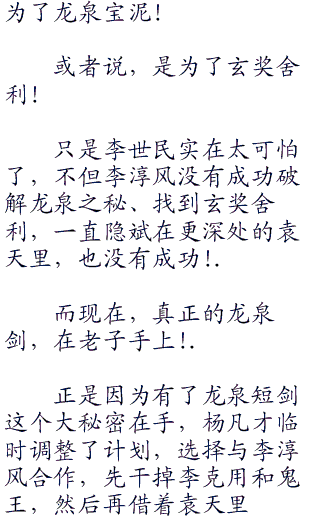 为了龙泉宝泥！
或者说，是为了玄奖舍
利！
只是李世民实在太可怕
了，不但李淳风没有成功破
解龙泉之秘、找到玄奖舍
利，一直隐斌在更深处的袁
天里，也没有成功！.
而现在，真正的龙泉
剑，在老子手上！.
正是因为有了龙泉短剑
这个大秘密在手，杨凡才临
时调整了计划，选择与李淳
风合作，先干掉李克用和鬼
王，然后再借着袁天里